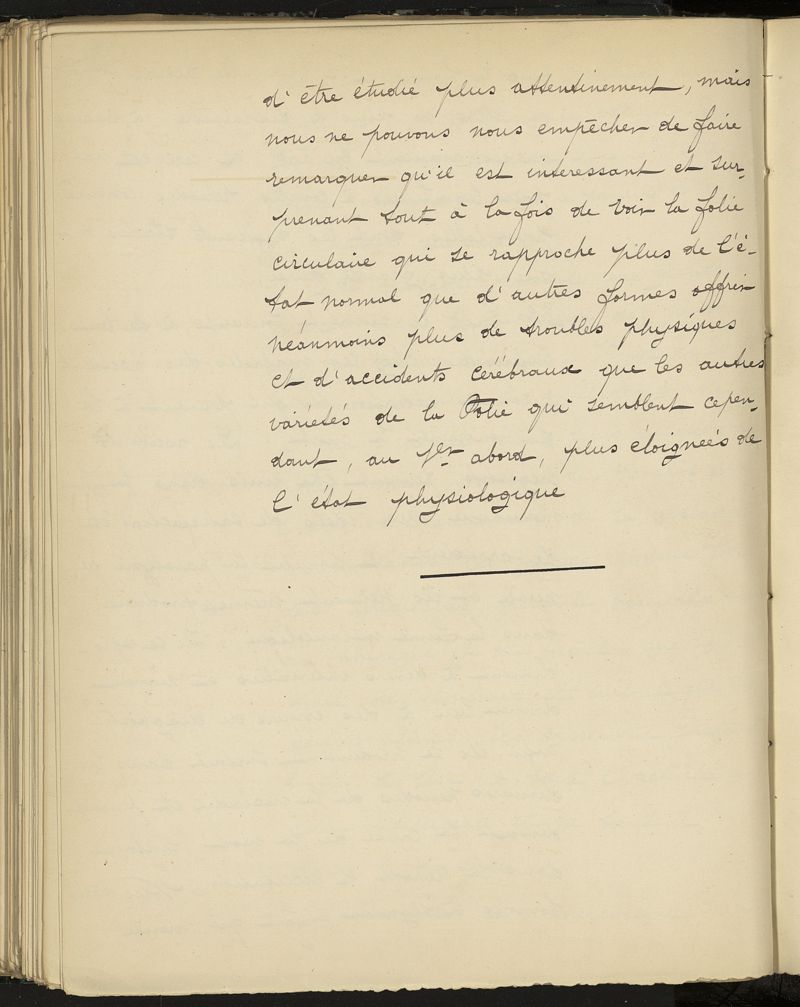 d'être étudié plus attentivement, mais
nous ne pouvons nous empêcher de faire
remarquer qu'il est intéressant et sur-
prenant tout à la fois de voir la folie
circulaire qui se rapproche plus de l'é-
tat normal que d'autres formes offrir
néanmoins plus de troubles physiques
et d'accidents cérébraux que les autres
variétés de la Folie qui semblent cepen-
dant, au 1er abord, plus éloignées de
l'état physiologique